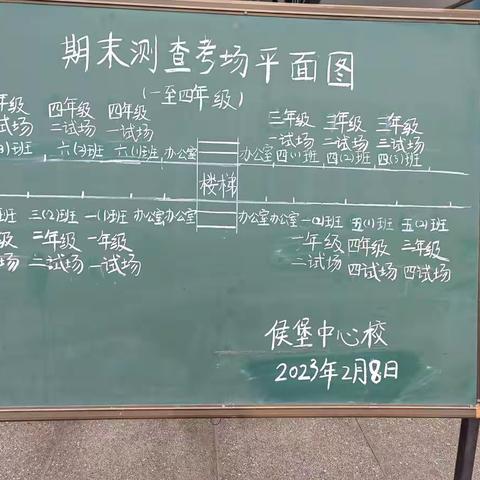 期末测查考场平面图
(一至四年级)
年级 四年级 四年级 三年级 三年级 三年级
试场 二试场 一试场 一试场 二试场 三试场
)班 六(2)班 六(1)班 办公室 办公室 四(1)班 四(2)班 四(3)班
楼梯
班 三(2)班 一(1)班 办公室 办公室 办公室 办公室 一(2)班 五(1)班 五(2)班
级 二年级 一年级 一年级 四年级 三年级
场 二试场 一试场 二试场 四试场 四试场
侯堡中心校
2023年2月8日